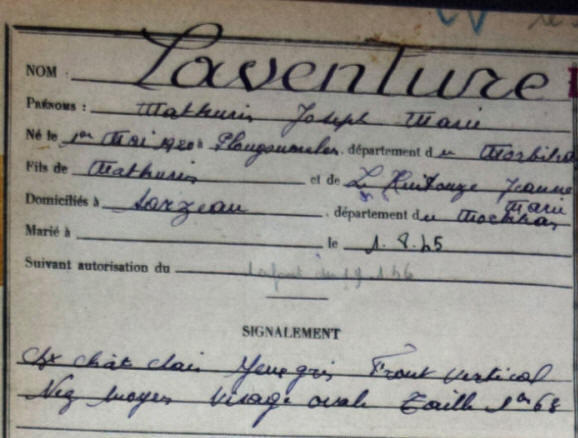 NOM : Laventure
PRÉNOMS : Mathurin Joseph Marie
Né le 1er Mai 1920 à Plougoumelen, département du Morbihan
Fils de Mathurin et de Le Jeanne
Marie
Domiciliés à Sarzeau, département du Morbihan
Marié à le 1.8.45
Suivant autorisation du
SIGNALEMENT
Chx chât clair Yeux gris Front vertical
Nez moyen Visage ovale Taille 1m68